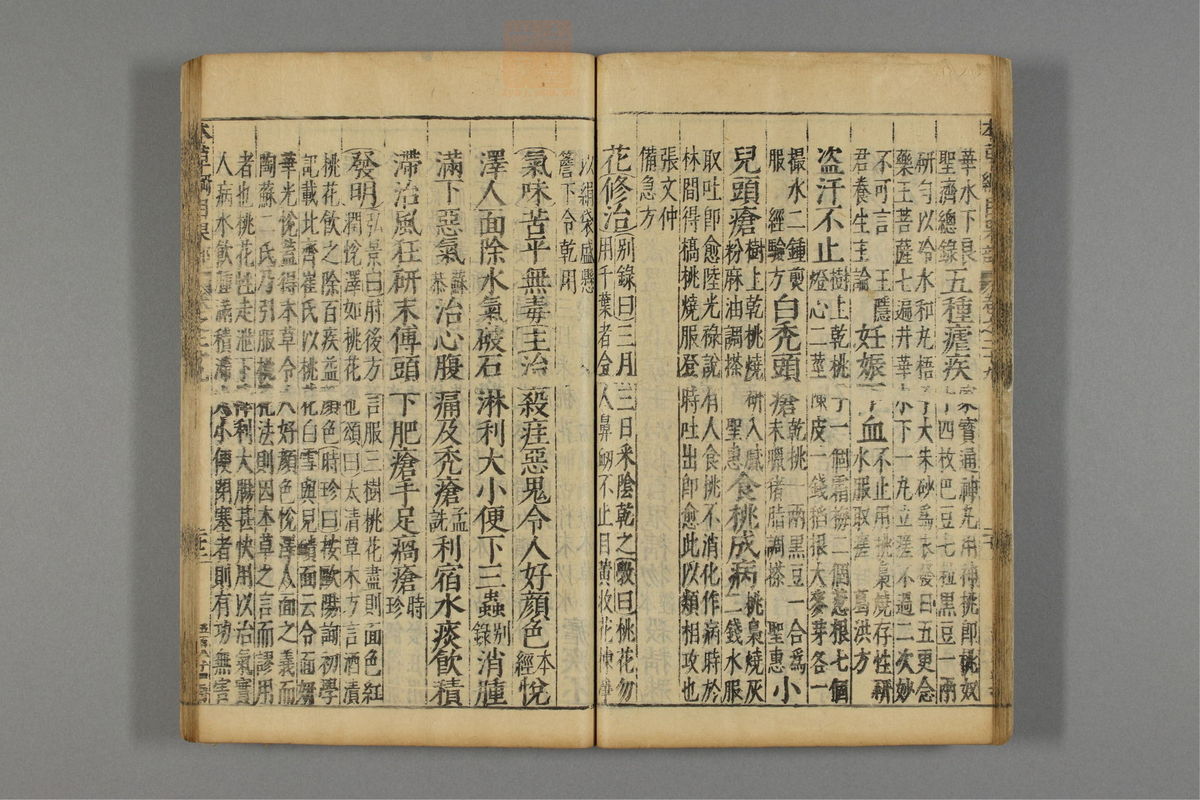 華水下良
聖濟總錄五種瘧疾家寶通神丸用神桃即桃奴
十四枚巴豆七粒黑豆一兩
研勻以冷水和丸梧子大朱砂為衣發日五更念
藥王菩薩七遍井華水下一丸立瘥不過二次妙
不可言王隱君養生主論妊娠下血不止用桃梟燒存性研
水服取瘥葛洪方
盜汗不止樹上乾桃子一個霜梅二個葱根七個
燈心二莖陳皮一錢稻根大麥芽各一
撮水二鍾煎服經驗方白禿頭瘡乾桃一兩黑豆一合為
末臘猪脂調搽聖惠小
兒頭瘡樹上乾桃燒研入膩粉麻油調搽聖惠食桃成病桃梟燒灰二錢水服
取吐即愈陸光祿說有人食桃不消化作病時於
林間得槁桃燒服登時吐出即愈此以類相攻也
張文仲備急方
花修治別錄曰三月三日采陰乾之斅曰桃花勿
用千葉者令人鼻衄不止目黃收花揀淨
以絹袋盛懸
簷下令乾用
氣味苦平無毒主治殺疰惡鬼令人好顏色本經悅
澤人面除水氣破石淋利大小便下三蟲別錄消腫
滿下惡氣蘇恭治心腹痛及禿瘡孟詵利宿水痰飲積
滯治風狂研末傅頭下肥瘡手足㾴瘡時珍
發明弘景曰肘後方言服三樹桃花盡則面色紅
潤悅澤如桃花也頌曰太清草木方言酒漬
桃花飲之除百疾益顏色時珍曰按歐陽詢初學
記載北齊崔氏以桃花白雪與兒靧面云令面妍
華光悅蓋得本草令人好顏色悅澤人面之義而
陶蘇二氏乃引服桃花法則因本草之言而謬用
者也桃花性走泄下降利大腸甚快用以治氣實
人病水飲腫滿積滯大小便閉塞者則有功無害